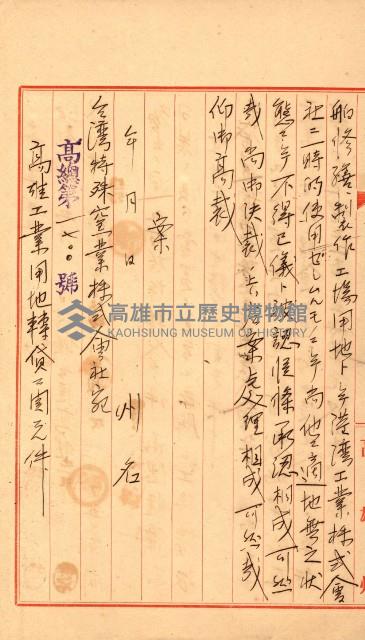 船修繕製作工場用地トシテ港湾工業株式會
社ニ一時的使用ゼシムルモノニシテ尚他ニ適地無之状
態ニシテ不得已儀ト被認候條承認相成可然
哉尚御決裁ノ上ハ案処理相成可然哉
仰御高裁
案
年月日
州名
台湾特殊窒業株式會社宛
高總第一七〇〇號
高雄工業用地轉貸ニ関スル件
高雄市立歷史博物館
KAOHSIUNG MUSEUM OF HISTORY
高雄州